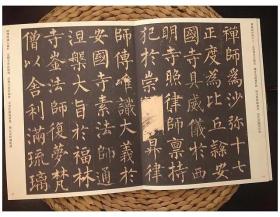 禪師為沙弥十七
正度為比丘隸安
國寺具威儀於西
明寺照律師稟持
犯於崇昇律
師傳唯識大義於
安國寺素法師通
涅槃大旨於福林
寺崟法師復夢梵
僧以舍利滿瑠璃